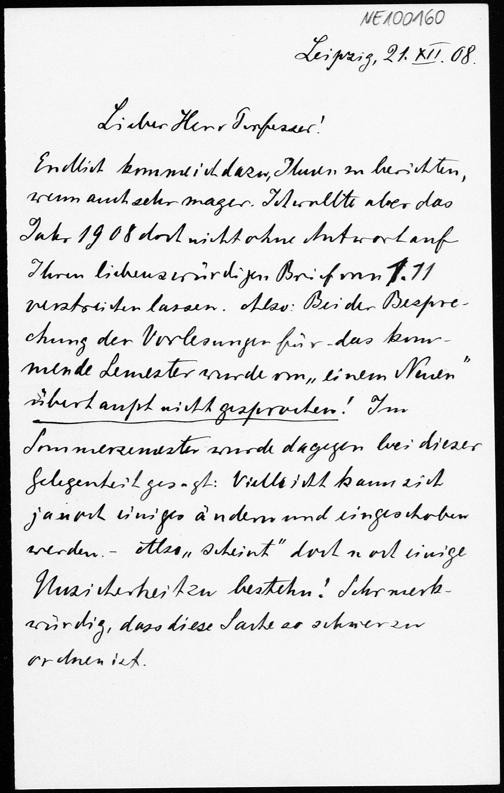 NE100160
Leipzig, 21. XII. 08.
Lieber Herr Professor!
Endlich komme ich dazu, Ihnen zu berichten,
wenn auch sehr mager. Ich wollte aber das
Jahr 1908 doch nicht ohne Antwort auf
Ihren liebenswürdigen Brief vom 1.11
verstreichen lassen. Also: Bei der Bespre-
chung der Vorlesungen für das kom-
mende Semester wurde von „einem Neuen"
überhaupt nicht gesprochen! Im
Sommersemester wurde dagegen bei dieser
Gelegenheit gesagt: Vielleicht kann sich
ja noch einiges ändern und eingeschoben
werden. – Also „scheint" doch noch einige
Unsicherheit zu bestehn! Sehr merk-
würdig, dass diese Sache so schwer zu
ordnen ist.